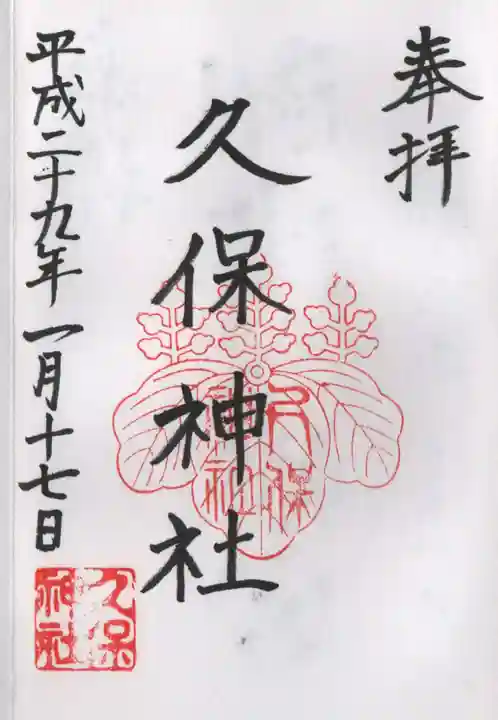 奉拝
久保神社
久保神社
平成二十九年一月十七日
久保神社